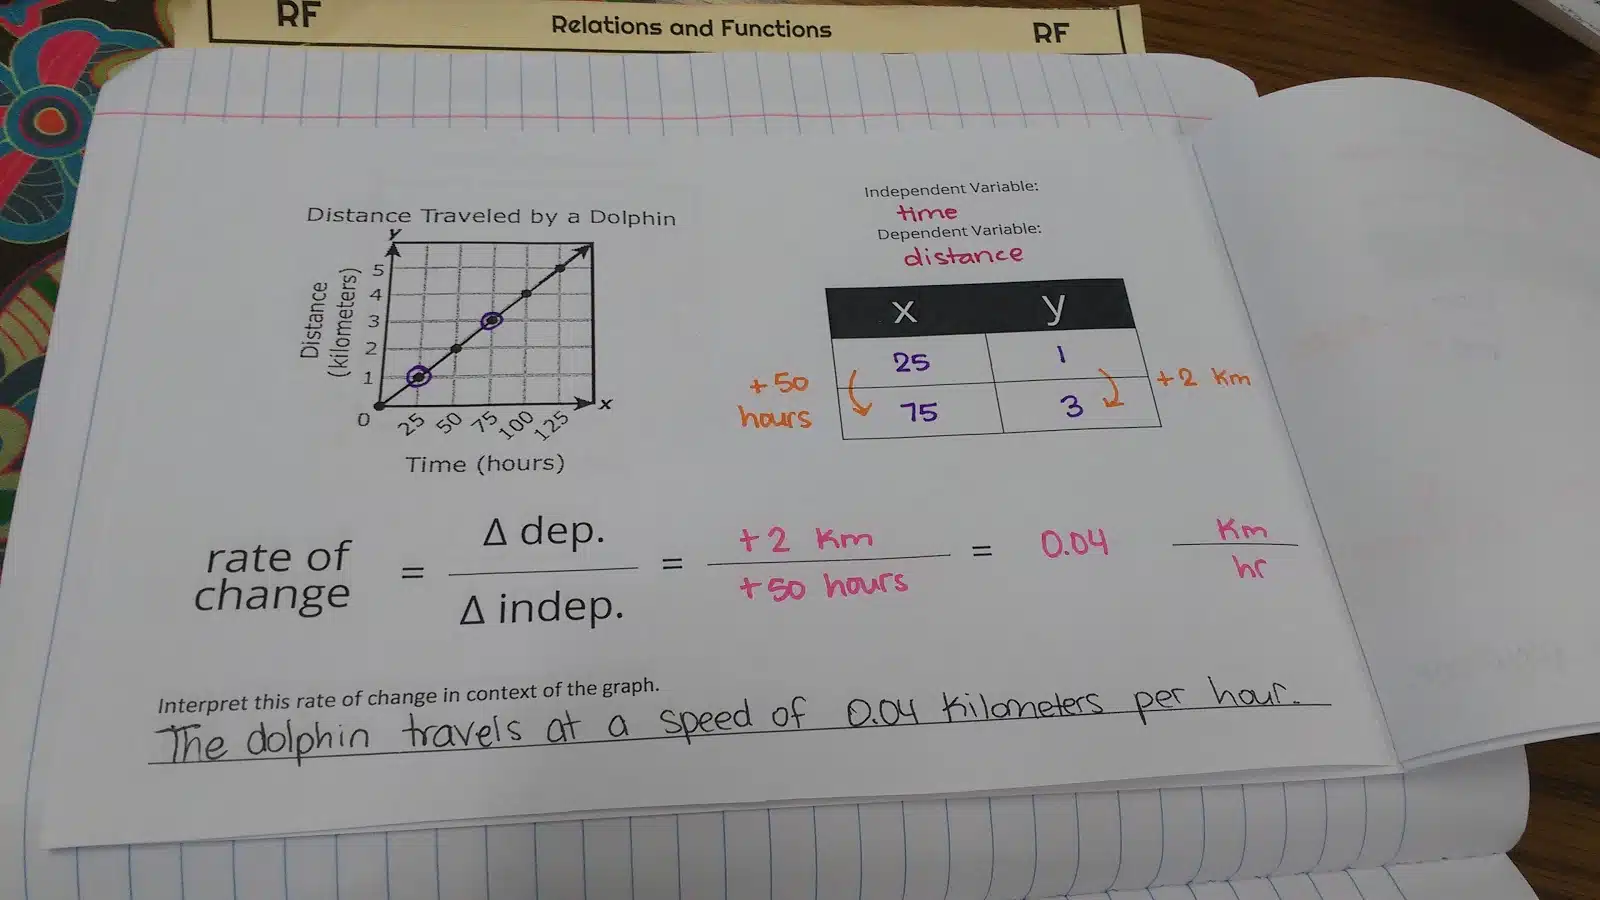 RF
Relations and Functions
RF
Distance Traveled by a Dolphin
y
Distance
(kilometers)
5
4
3
2
1
0
25 50 75 100 125
x
Time (hours)
Independent Variable:
time
Dependent Variable:
distance
x y
25 1
75 3
+50
hours
+2 Km
rate of
change
=
Δ dep.
Δ indep.
=
+2 Km
+50 hours
=
0.04
Km
hr
Interpret this rate of change in context of the graph.
The dolphin travels at a speed of 0.04 Kilometers per hour.